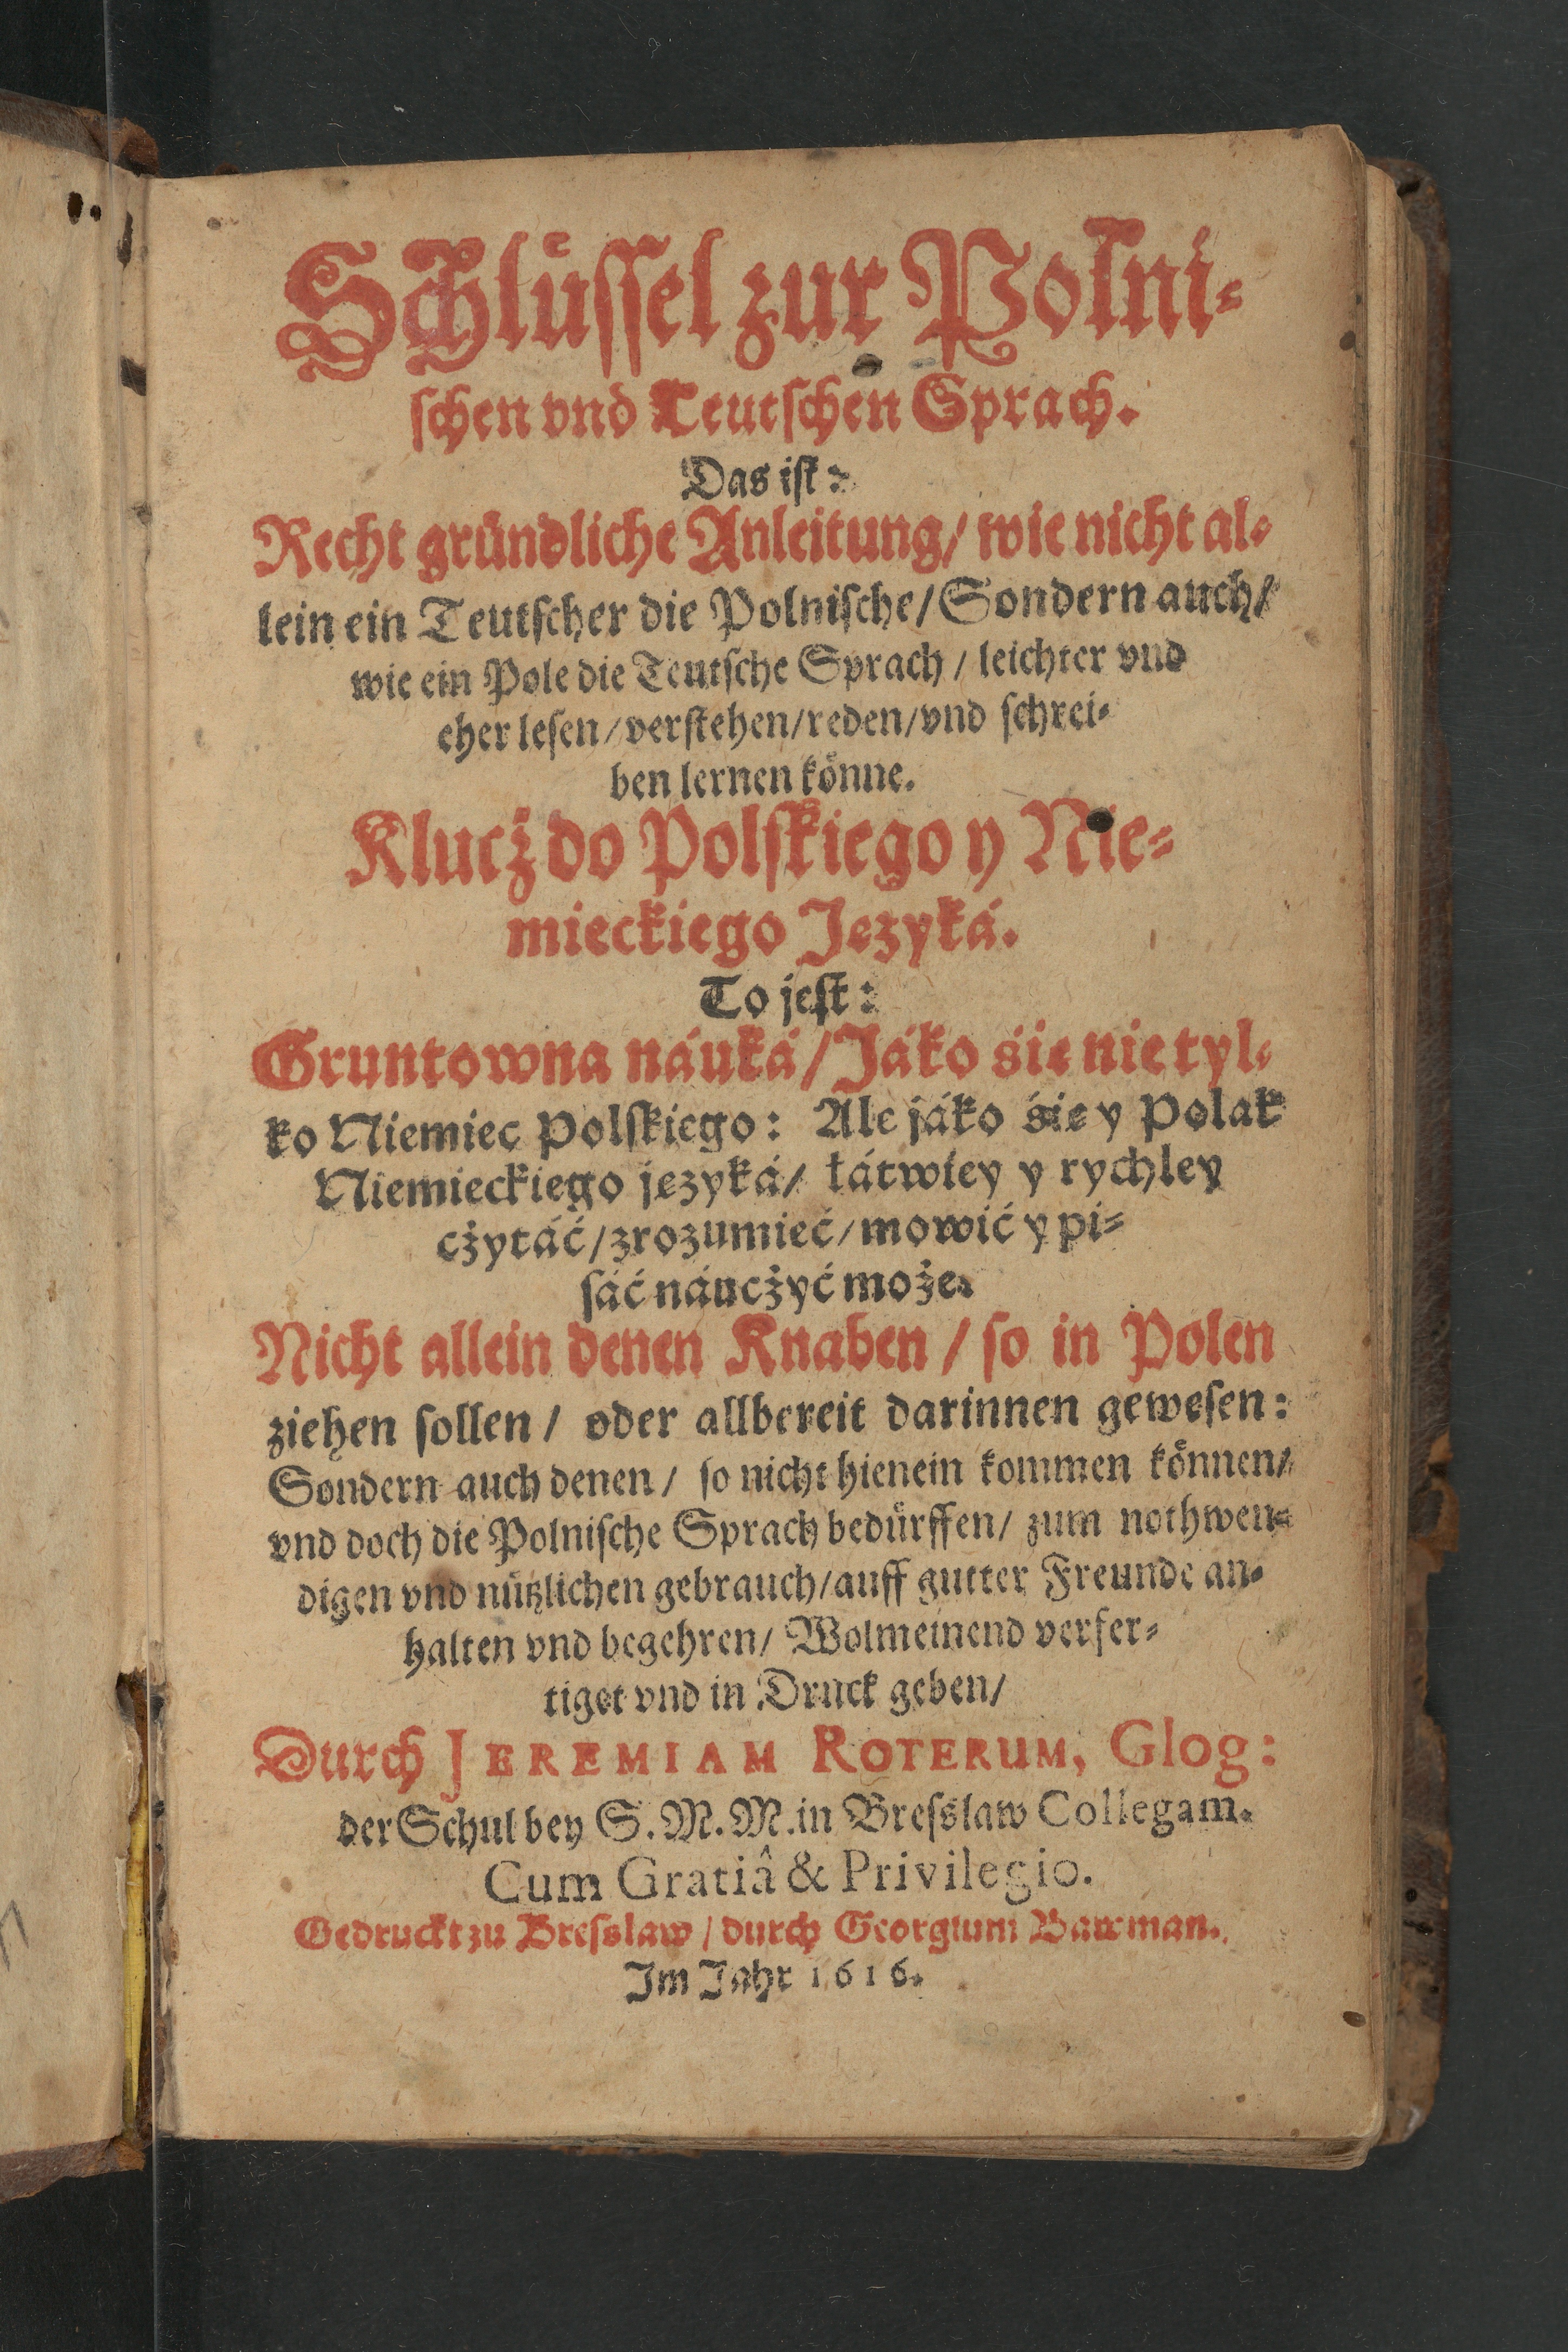 SChlüssel zur Polni-
schen vnd Teutschen Sprach.
Das ist:
Recht gründliche Anleitung/ wie nicht al-
lein ein Teutscher die Polnische/ Sondern auch/
wie ein Pole die Teutsche Sprach / leichter vnd
eher lesen/ verstehen/ reden/ vnd schrei-
ben lernen könne.
Klucż do Polskiego y Nie-
mieckiego Języká.
To jest:
Gruntowna náuká/ Jáko się nie tyl-
ko Niemiec Polskiego: Ale jáko się y Polak
Niemieckiego języká/ łátwiey y rychley
cżytáć/ zrozumieć/ mowić y pi-
sáć náucżyć może.
Nicht allein denen Knaben / so in Polen
ziehen sollen / oder allbereit darinnen gewesen:
Sondern auch denen / so nicht hienein kommen können/
vnd doch die Polnische Sprach bedürffen/ zum nothwen-
digen vnd nützlichen gebrauch/ auff gutter Freunde an-
halten vnd begehren/ Wolmeinend verfer-
tiget vnd in Druck geben/
Durch JEREMIAM ROTERUM, Glog:
der Schul bey S. M. M. in Bresslaw Collegam.
Cum Gratiâ & Privilegio.
Gedruckt zu Bresslaw / durch Georgium Bawman.
Im Jahr 1616.